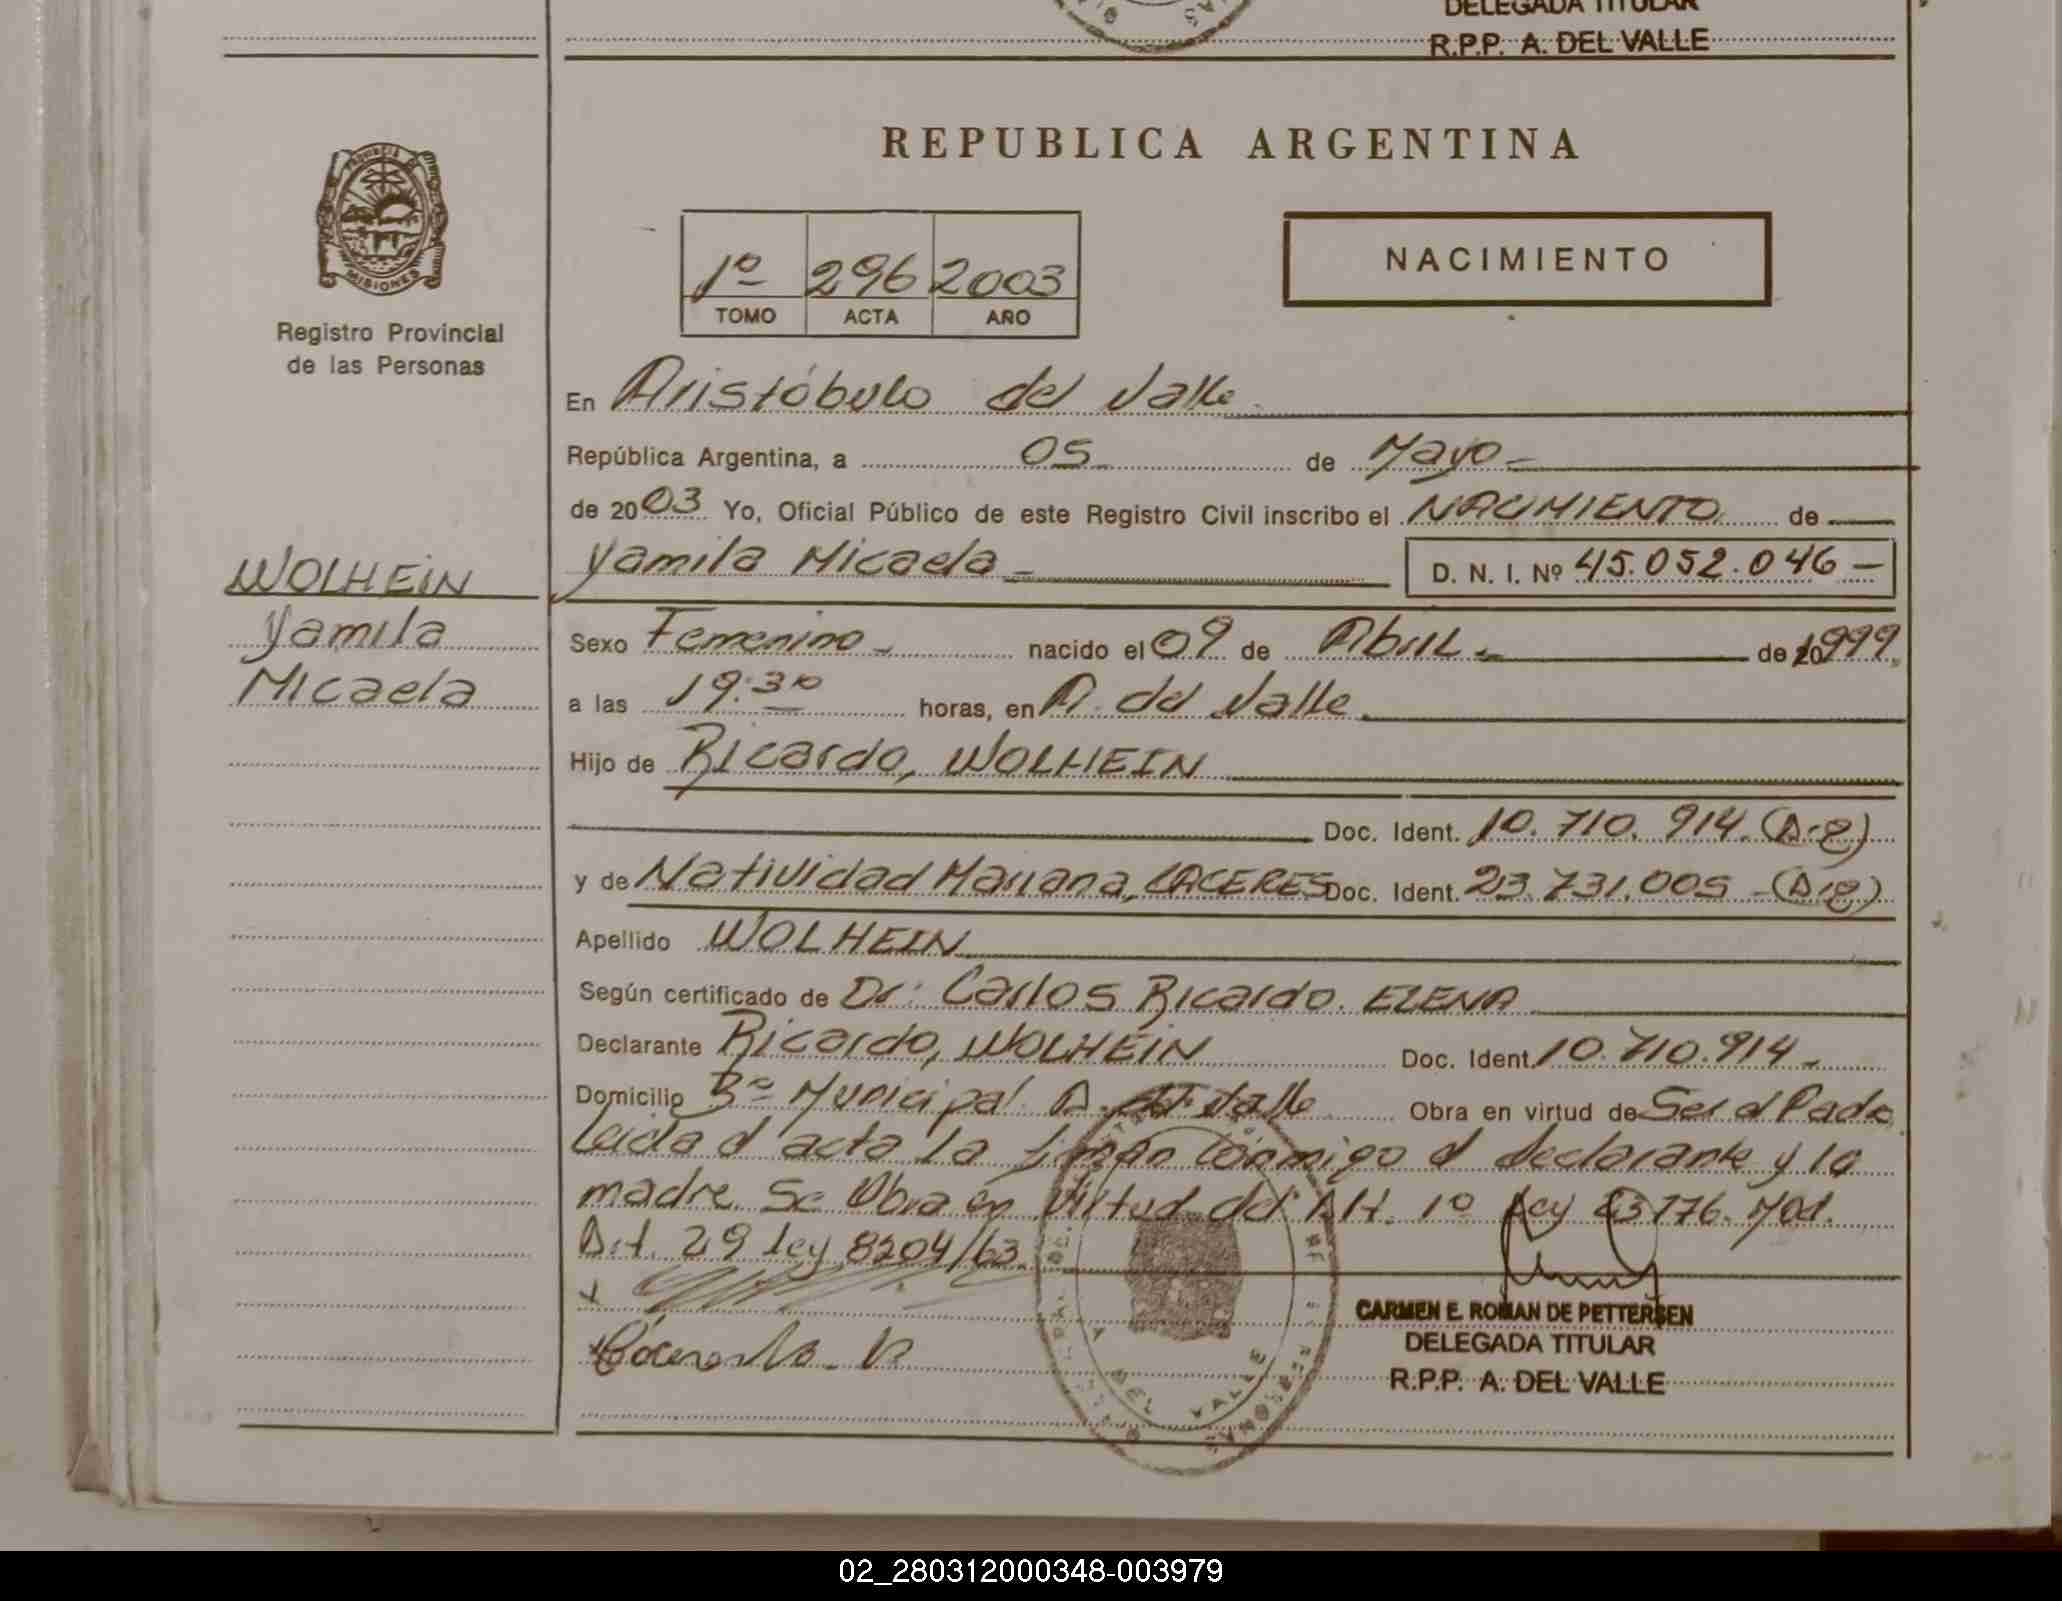 DELEGADA TITULAR
R.P.P. A. DEL VALLE
REPUBLICA ARGENTINA
PROVINCIA DE
MISIONES
Registro Provincial
de las Personas
1º 296 2003
TOMO ACTA AÑO
NACIMIENTO
En Aristóbulo del Valle
República Argentina, a 05 de Mayo
de 2003 Yo, Oficial Público de este Registro Civil inscribo el NACIMIENTO de
WOLHEIN
Yamila
Micaela
Yamila Micaela D. N. I. Nº 45.052.046
Sexo Femenino nacido el 09 de Abril de 1999
a las 19:30 horas, en A. del Valle
Hijo de Ricardo, WOLHEIN
Doc. Ident. 10.710.914 (Arg)
y de Natividad Mariana, CACERES Doc. Ident. 23.731.005 (Arg)
Apellido WOLHEIN
Según certificado de Dr. Carlos Ricardo. ELENA
Declarante Ricardo, WOLHEIN Doc. Ident. 10.710.914
Domicilio Bº Municipal A. del Valle Obra en virtud de Ser el Padre
Leida el acta la firman conmigo el declarante y la
madre. Se Obra en virtud del Art. 1º Ley 25776. Mod.
Art. 29 Ley 8204/63
CARMEN E. ROMAN DE PETTERSEN
DELEGADA TITULAR
R.P.P. A. DEL VALLE
A. DEL VALLE
02_280312000348-003979